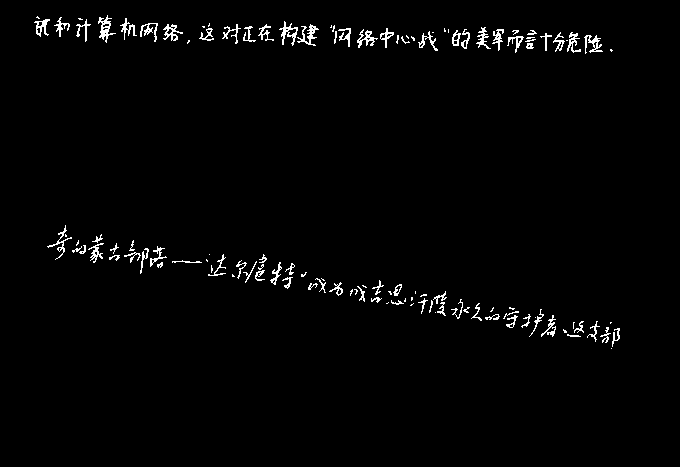 讯和计算机网络，这对正在构建“网络中心战”的美军而言十分危险．
奇的蒙古部落——“达尔扈特”成为成吉思汗陵永久的守护者．这支部